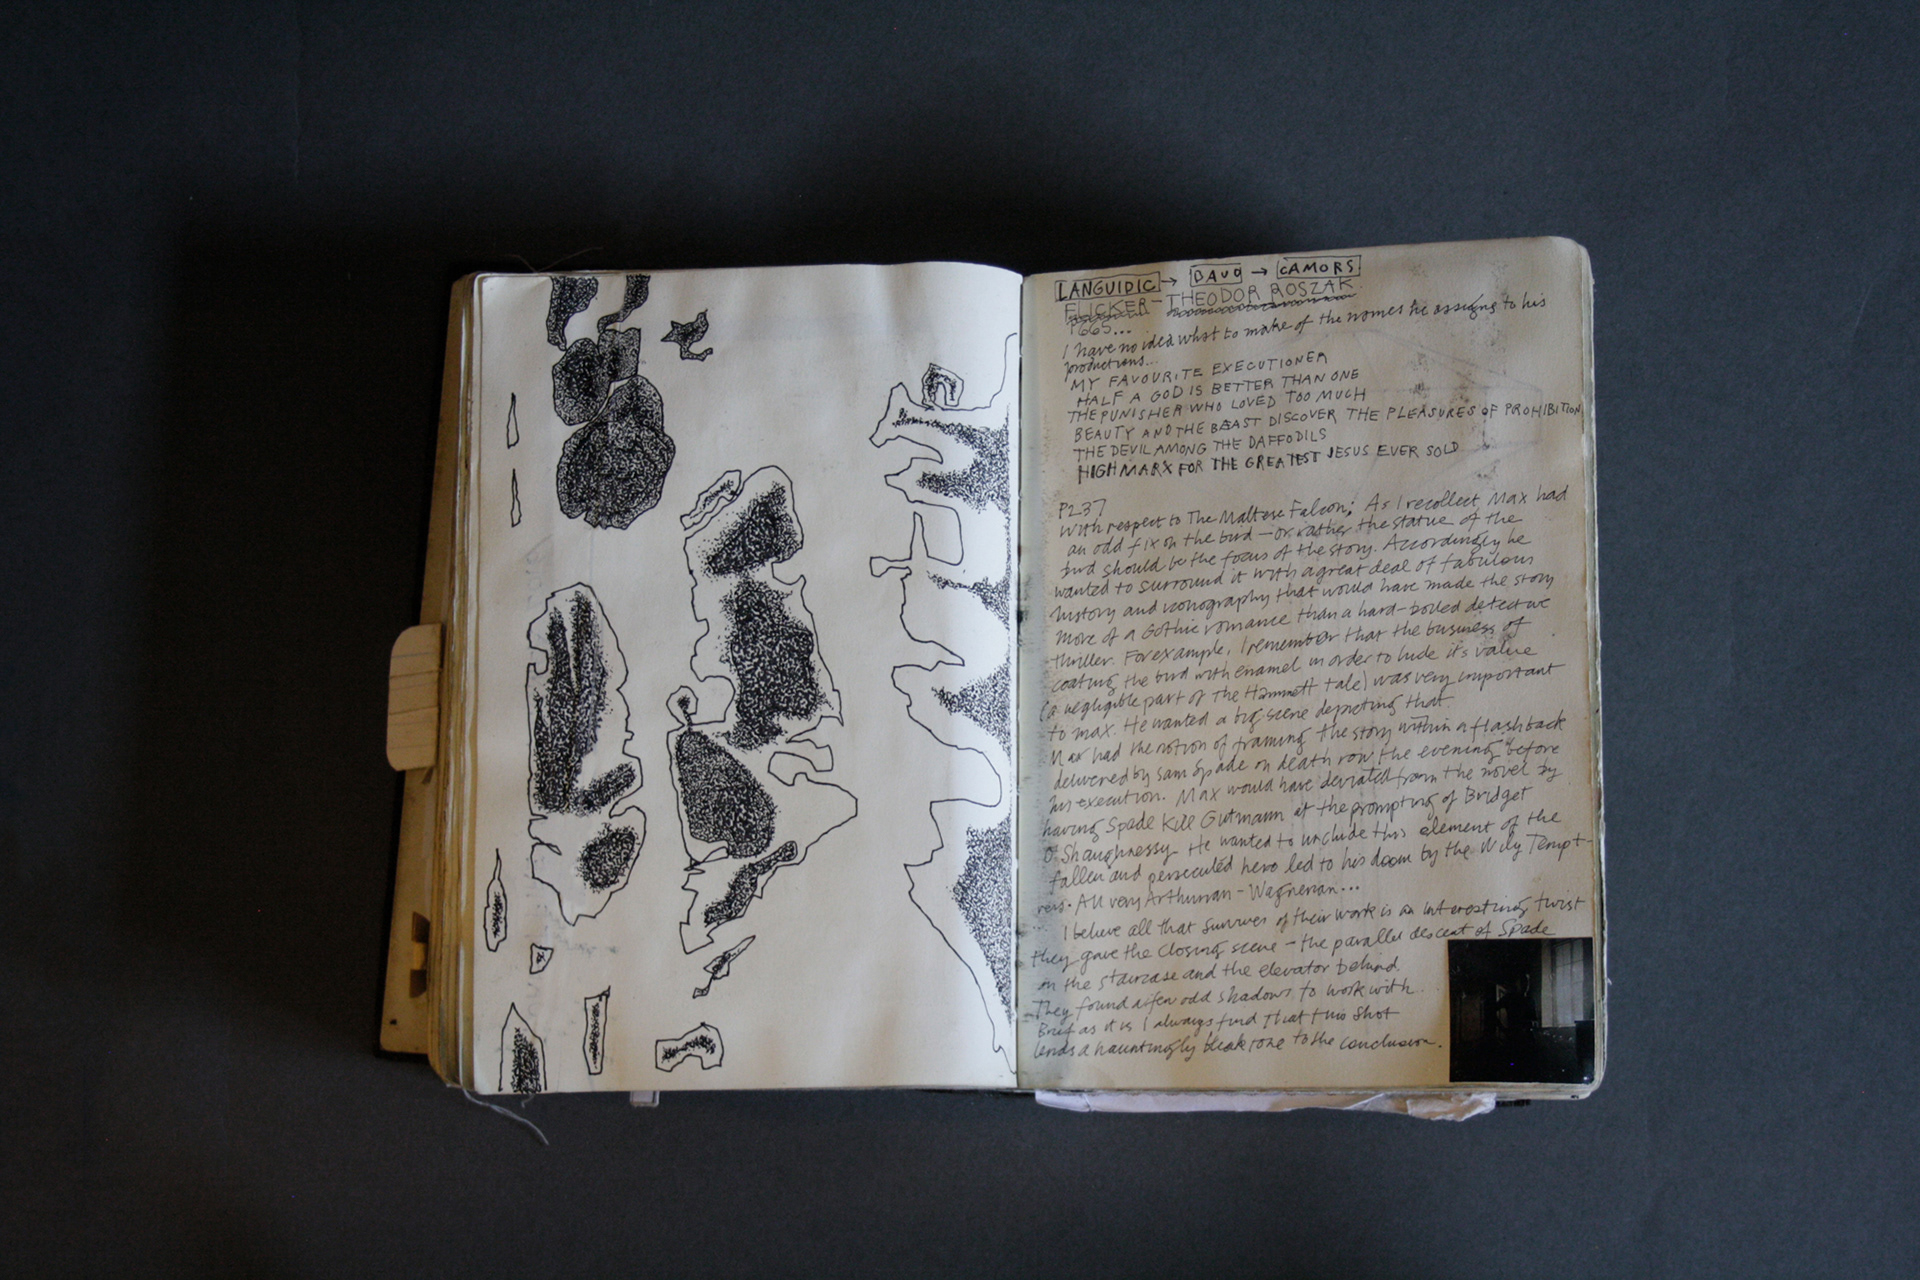 LANGUIDIC → DAUO → CAMORS
FLICKER - THEODOR ROSZAK
P665...
I have no idea what to make of the names he assigns to his
productions...
MY FAVOURITE EXECUTIONER
HALF A GOD IS BETTER THAN ONE
THE PUNISHER WHO LOVED TOO MUCH
BEAUTY AND THE BEAST DISCOVER THE PLEASURES OF PROHIBITION
THE DEVIL AMONG THE DAFFODILS
HIGH MARX FOR THE GREATEST JESUS EVER SOLD
P237
With respect to The Maltese Falcon: As I recollect, Max had
an odd fix on the bird - or rather the statue of the
bird should be the focus of the story. Accordingly he
wanted to surround it with a great deal of fabulous
history and iconography that would have made the story
more of a Gothic romance than a hard-boiled detective
thriller. For example, I remember that the business of
coating the bird with enamel in order to hide it's value
(a negligible part of the Hammett tale) was very important
to max. He wanted a big scene depicting that.
Max had the notion of framing the story within a flashback
delivered by Sam Spade on death row the evening before
his execution. Max would have deviated from the novel by
having Spade kill Gutmann at the prompting of Bridget
O'Shaughnessy. He wanted to include this element of the
fallen and persecuted hero led to his doom by the Wily Tempt-
ress. All very Arthurian - Wagnerian...
I believe all that survives of their work is an interesting twist
they gave the closing scene - the parallel descent of Spade
on the staircase and the elevator behind.
They found a few odd shadows to work with.
Brief as it is I always find that this shot
lends a hauntingly bleak tone to the conclusion.